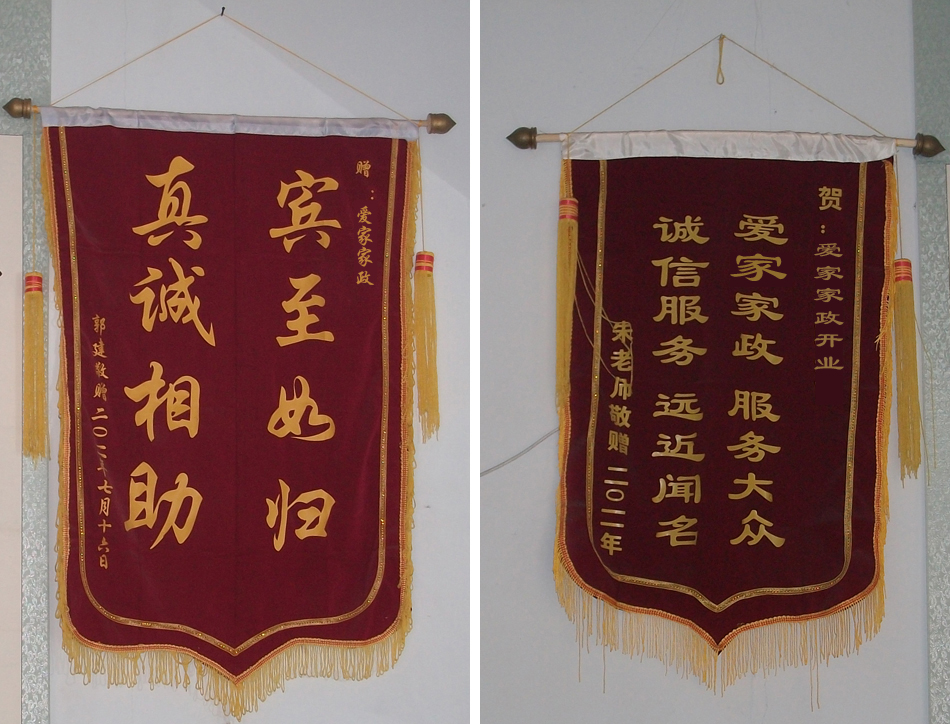 赠：爱家家政
宾至如归
真诚相助
郭建敬赠
七月十六日
贺：爱家家政开业
爱家家政 服务大众
诚信服务 远近闻名
宋老师敬赠 二〇一二年